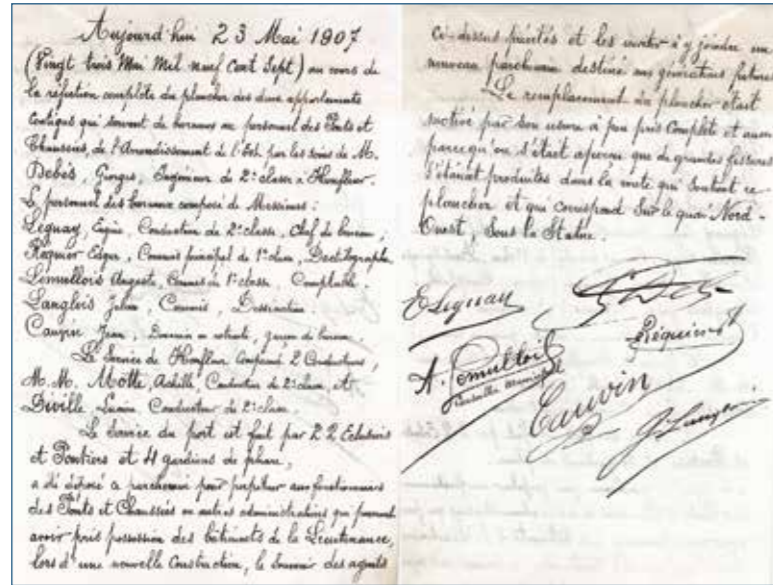 Aujourd'hui 23 Mai 1907
(Vingt trois Mai Mil neuf Cent Sept) au cours de
la réfection complète du plancher des deux appartements
contigus qui servent de bureaux au personnel des Ponts et
Chaussées, de l'Arrondissement de l'Est par les soins de M.
Debès, Georges, Ingénieur de 2e classe à Honfleur.
Le personnel des bureaux composé de Messieurs :
Leguay, Eugène, Conducteur de 2e classe, Chef de bureau,
Réquier Edgar, Commis principal de 1e classe, Dactylographe
Lemullois Auguste, Commis de 1e classe, Comptable.
Langlois Julien, Commis, Dessinateur.
Cauvin Jean, Douanier en retraite, garçon de bureau
Le Service de Honfleur comprend 2 Conducteurs,
M.M. Motte, Achille, Conducteur de 2e classe, et
Diville, Lucien, Conducteur de 2e classe.
Le Service du port est fait par 22 Eclusiers
et Pontiers et 4 gardiens de phare,
a déposé ce parchemin pour perpétuer aux fonctionnaires
des Ponts et Chaussées ou autres administrations qui pourront
avoir pris possession des bâtiments de la Lieutenance,
lors d'une nouvelle Construction, le Souvenir des agents
ci-dessus précités et les inviter à y joindre un
nouveau parchemin destiné aux générations futures
Le remplacement du plancher était
motivé par son usure à peu près complète et aussi
parcequ'on s'était aperçu que de grandes fissures
s'étaient produites dans la voute qui soutient ce
plancher et qui correspond Sur le quai Nord-
Ouest, Sous la Statue.
E Leguay
Réquier
A. Lemullois
Conseiller Municipal
Cauvin
J. Langlois